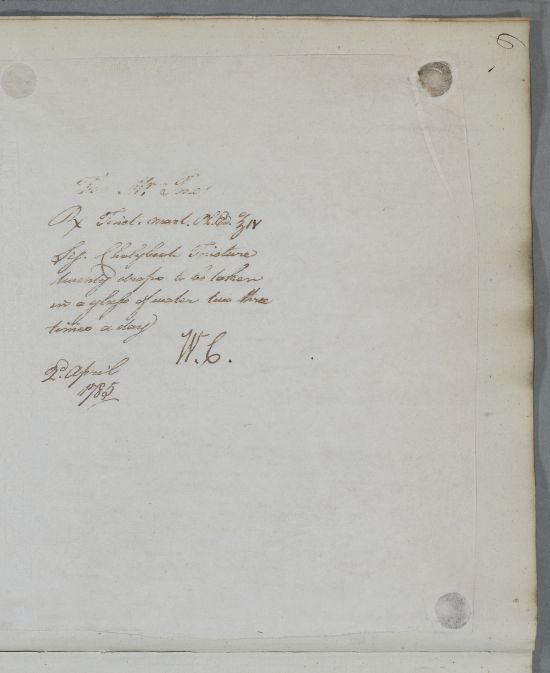 6
For Mr.
Rx Tinct. mart. Ph. Ed. ℥iv
Sig. Chalybeat Tincture
twenty drops to be taken
in a glass of water two three
times a day
W. C.
2d. April
1785